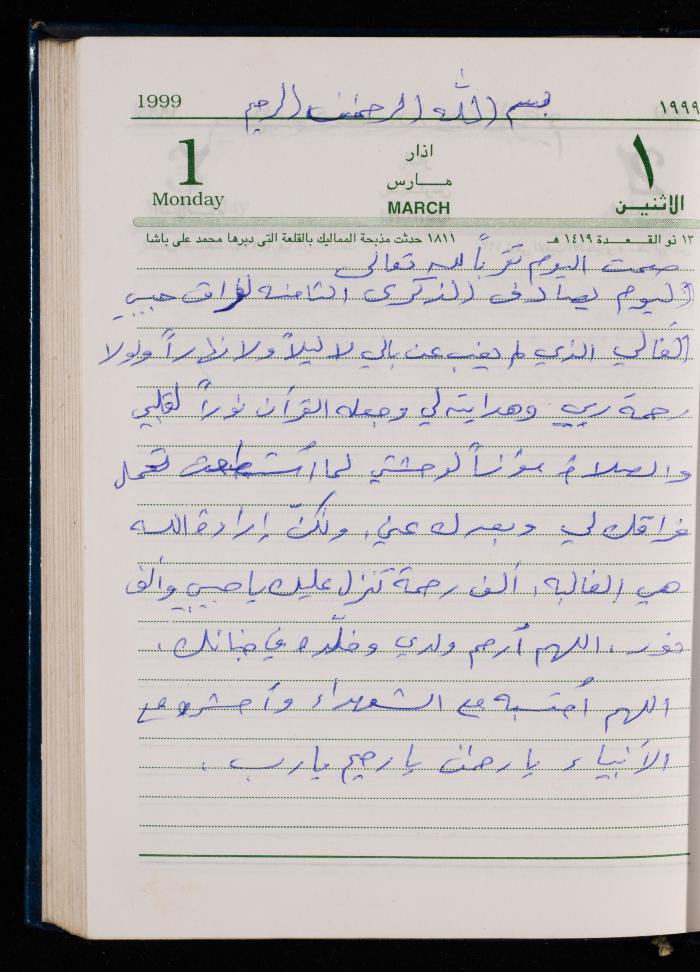 بسم الله الرحمن الرحيم
1999 ١٩٩٩
1 اذار ١
Monday مــارس الاثنيـن
MARCH
١٣ ذو القـــعــدة ١٤١٩ هـ ١٨١١ حدثت مذبحة المماليك بالقلعة التى دبرها محمد على باشا
صمت اليوم تقرباً لله تعالى
اليوم يصادف الذكرى الثامنه لفراق حبيبي
الغالي الذي لم يغب عن بالي لا ليلاً ولا نهاراً ولولا
رحمة ربي وهدايته لي وجعله القرآن نوراً لقلبي
والصلاة مؤنساً لوحشتي لما أستطعت تحمل
فراقك لي وبعدك عني، ولكنّ إرادة الله
هي الغالبه، ألف رحمة تنزل عليك يا حبيبي وألف
نور، اللهم أرحم ولدي وخلّده في جنانك،
اللهم أحتسبه مع الشهداء وأحشره مع
الأنبياء يا رحمن يا رحيم يا رب.